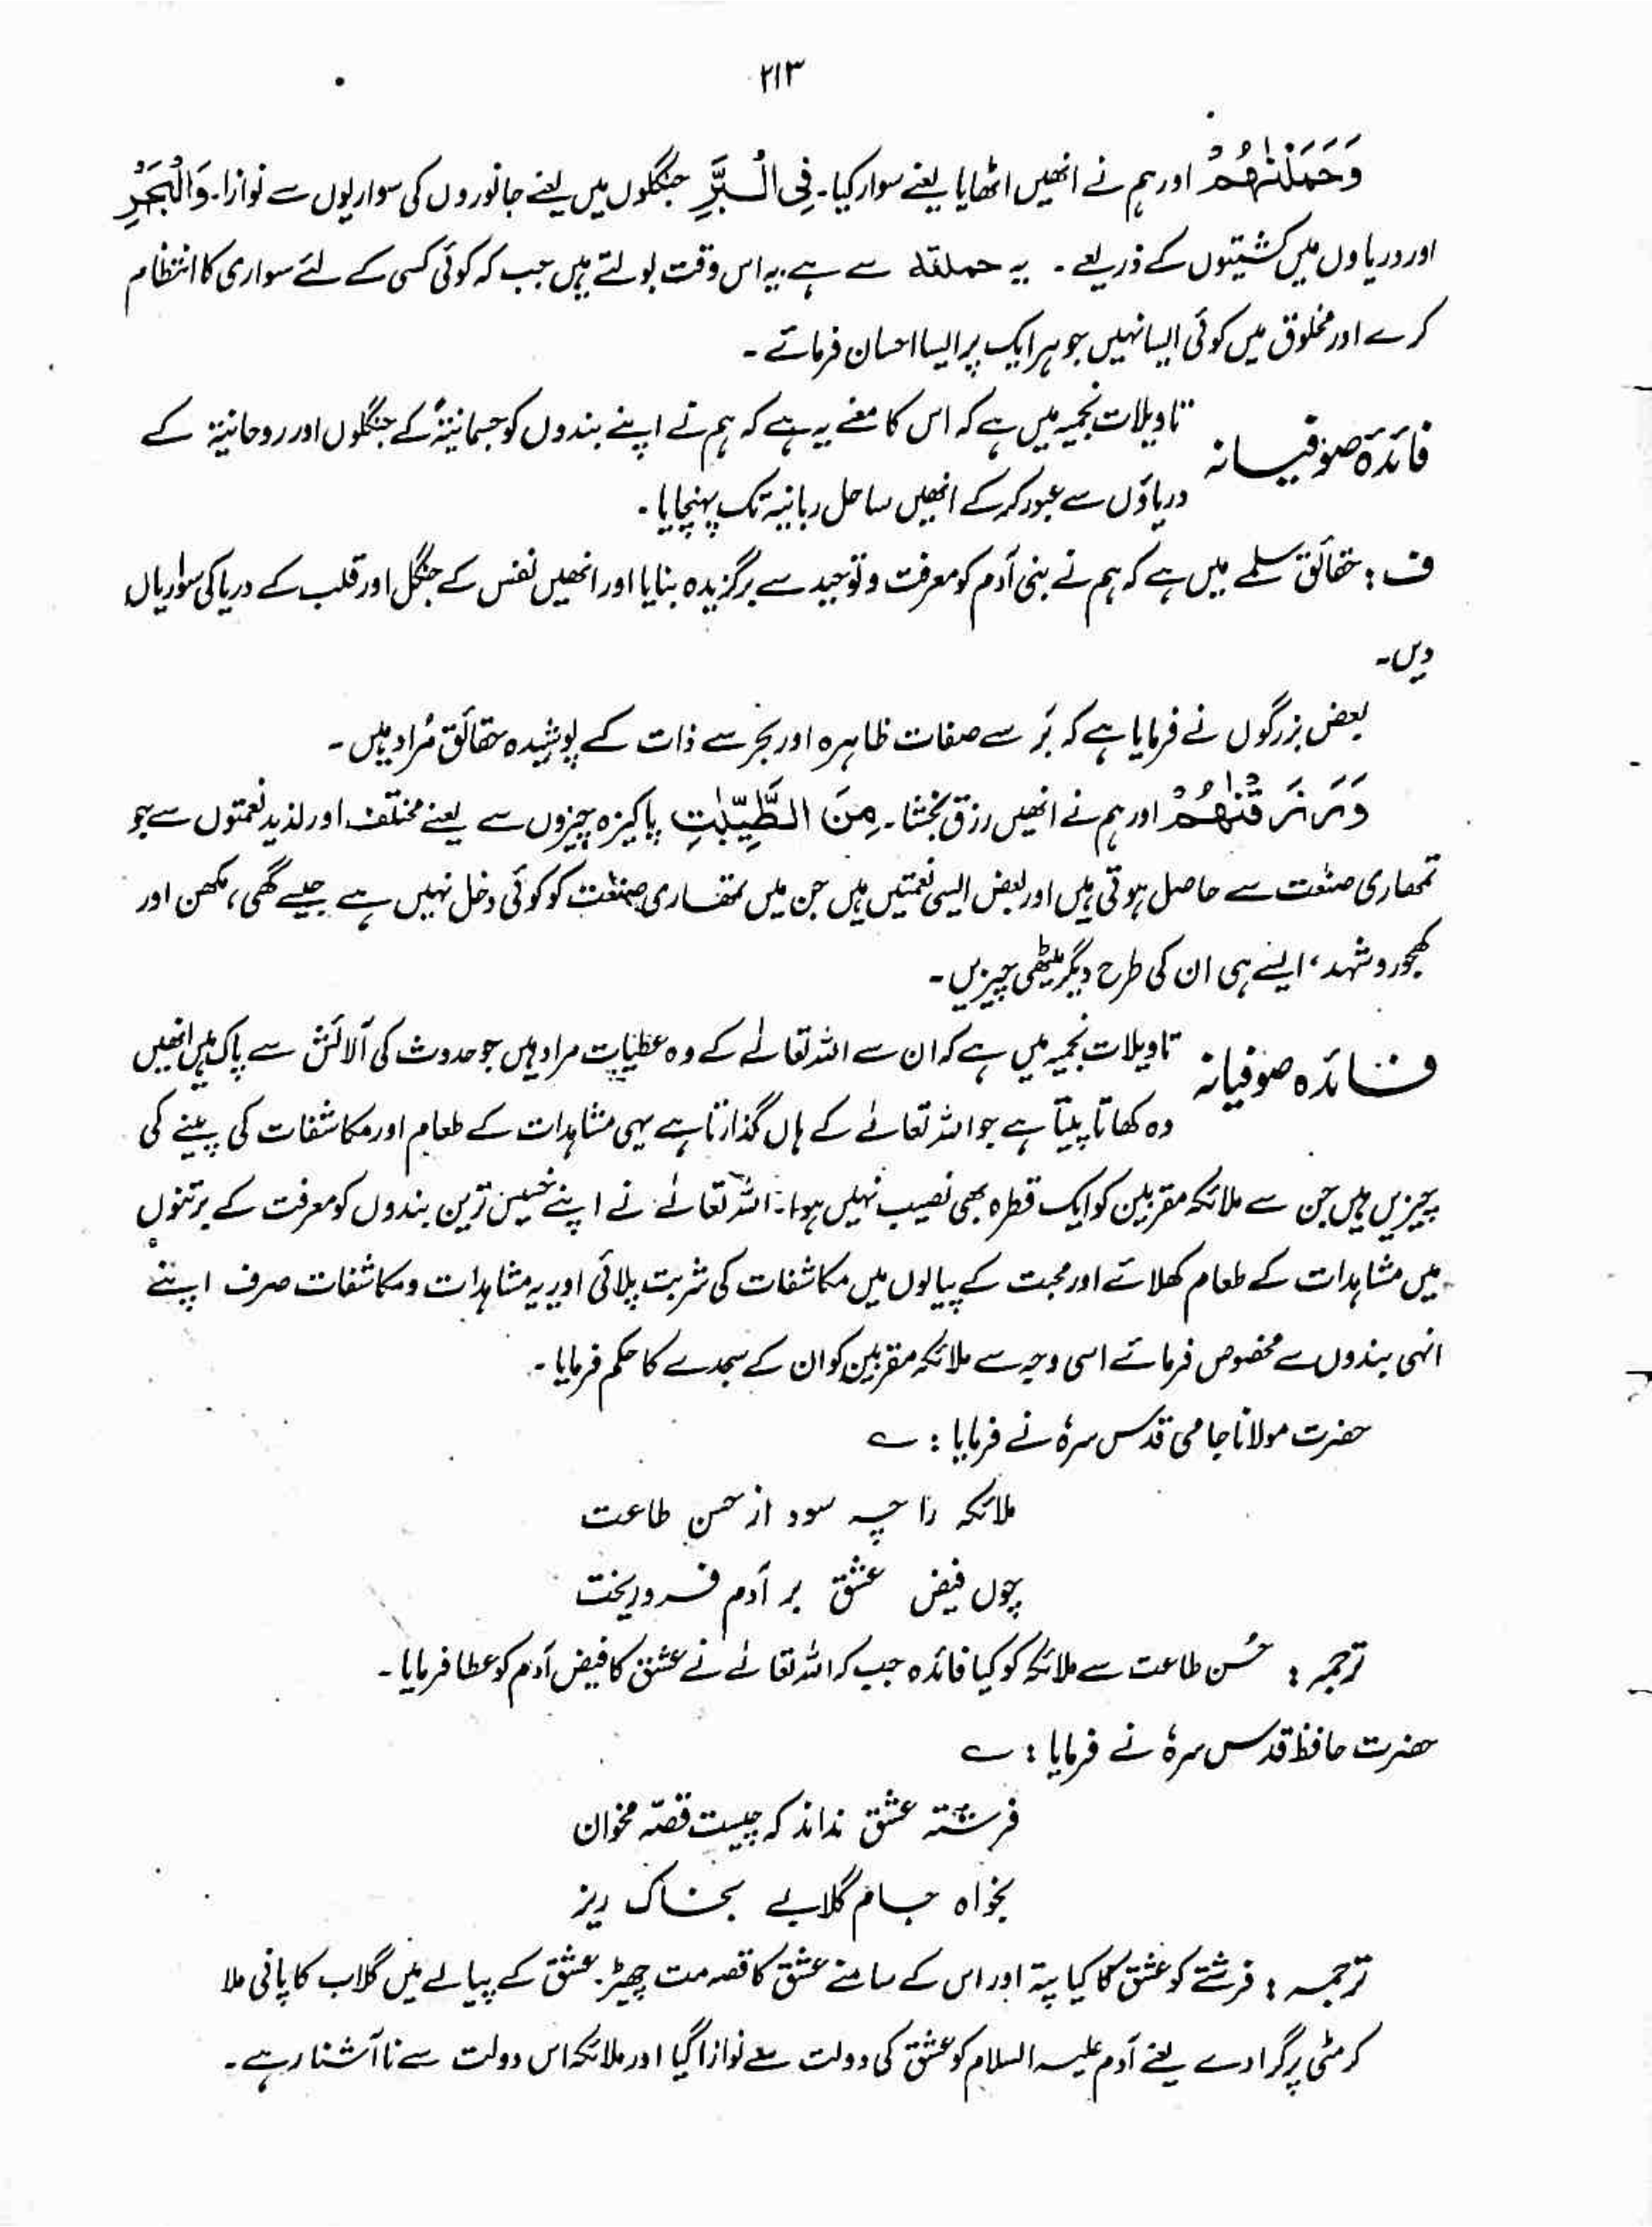 ۲۱۳
وَحَمَلْنٰهُمْ اور ہم نے انھیں اٹھایا یعنے سوار کیا۔ فِی الْبَرِّ جنگلوں میں یعنے جانوروں کی سواریوں سے نوازا۔ وَالْبَحْرِ
اور دریاوں میں کشتیوں کے ذریعے ۔ یہ حملتہ سے ہے یہ اس وقت بولتے ہیں جب کہ کوئی کسی کے لئے سواری کا انتظام
کرے اور مخلوق میں کوئی ایسا نہیں جو ہر ایک پر ایسا احسان فرمائے ۔
فائدہ صوفیانہ تاویلات نجمیہ میں ہے کہ اس کا معنے یہ ہے کہ ہم نے اپنے بندوں کو جسمانیۃ کے جنگلوں اور روحانیۃ کے
دریاؤں سے عبور کرکے انھیں ساحل ربانیۃ تک پہنچایا ۔
ف : حقائق سلمے میں ہے کہ ہم نے بنی آدم کو معرفت و توحید سے برگزیدہ بنایا اور انھیں نفس کے جنگل اور قلب کے دریا کی سواریاں
دیں۔
بعض بزرگوں نے فرمایا ہے کہ بَر سے صفات ظاہرہ اور بحر سے ذات کے پوشیدہ حقائق مُراد ہیں ۔
وَرَزَقْنٰهُمْ اور ہم نے انھیں رزق بخشا۔ مِنَ الطَّیِّبٰتِ پاکیزہ چیزوں سے یعنے مختلف اور لذیذ نعمتوں سے جو
تمھاری صنعت سے حاصل ہوتی ہیں اور بعض ایسی نعمتیں ہیں جن میں تمھاری صنعت کو کوئی دخل نہیں ہے جیسے گھی، مکھن اور
کھجور و شہد ، ایسے ہی ان کی طرح دیگر میٹھی چیزیں ۔
فائدہ صوفیانہ تاویلات نجمیہ میں ہے کہ ان سے اللہ تعالےٰ کے وہ عطیات مراد ہیں جو حدوث کی آلائش سے پاک ہیں انھیں
وہ کھاتا پیتا ہے جو اللہ تعالےٰ کے ہاں گذارتا ہے یہی مشاہدات کے طعام اور مکاشفات کی پینے کی
چیزیں ہیں جن سے ملائکہ مقربین کو ایک قطرہ بھی نصیب نہیں ہوا۔ اللہ تعالےٰ نے اپنے حسین ترین بندوں کو معرفت کے برتنوں
میں مشاہدات کے طعام کھلائے اور محبت کے پیالوں میں مکاشفات کی شربت پلائی اور یہ مشاہدات و مکاشفات صرف اپنے
انہی بندوں سے مخصوص فرمائے اسی وجہ سے ملائکہ مقربین کو ان کے سجدے کا حکم فرمایا ۔
حضرت مولانا جامی قدس سرہٗ نے فرمایا : ے
ملائکہ را چہ سود از حسن طاعت
چوں فیض عشق بر آدم فروریخت
ترجمہ : حُسن طاعت سے ملائکہ کو کیا فائدہ جب کہ اللہ تعالےٰ نے عشق کا فیض آدم کو عطا فرمایا ۔
حضرت حافظ قدس سرہٗ نے فرمایا : ے
فرشتہ عشق نداند کہ چیست قصّہ مخوان
بخواہ جام گلابے بخاک ریز
ترجمہ : فرشتے کو عشق کا کیا پتہ اور اس کے سامنے عشق کا قصہ مت چھیڑ۔ عشق کے پیالے میں گلاب کا پانی ملا
کر مٹی پر گرا دے یعنے آدم علیہ السلام کو عشق کی دولت سے نوازا گیا اور ملائکہ اس دولت سے نا آشنا رہے ۔